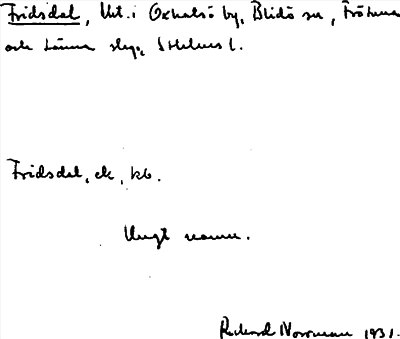 Fridsdal, Lht. i Oxhalsö by, Blidö sn, Frötuna
och Länna skg, Sthlms l.
Fridsdal, ek, kb.
Ungt namn.
Rickard Norrman 1931.